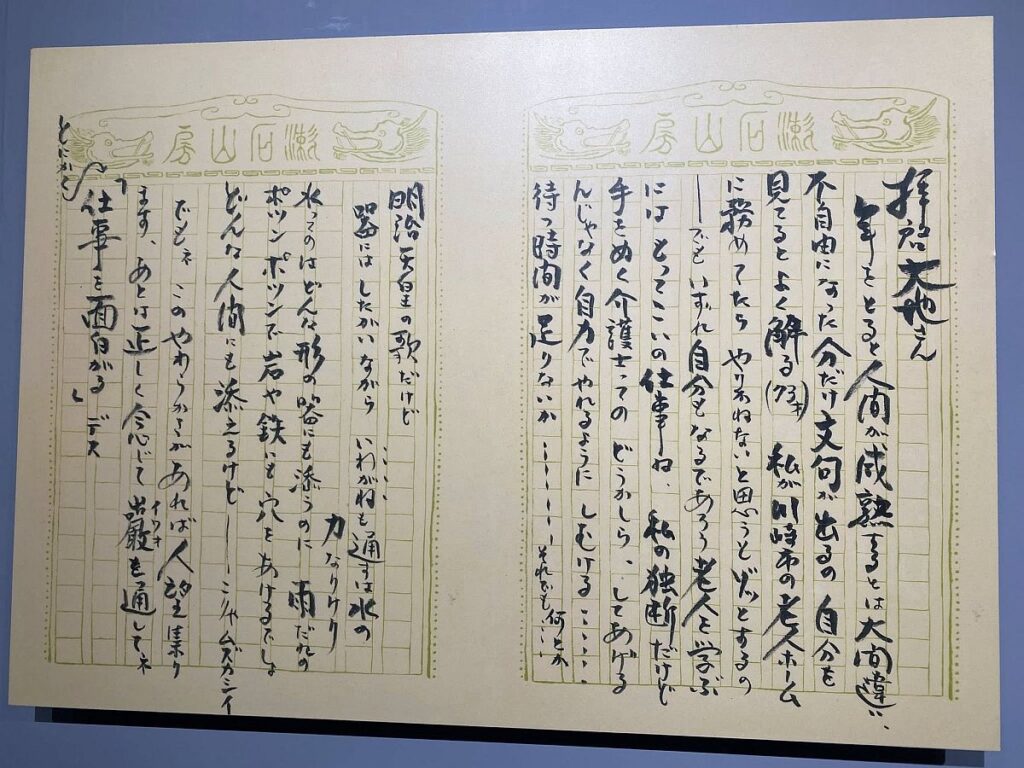 漱石山房
拝啓 大地さん
年をとると人間が成熟するとは大間違い、
不自由になった分だけ文句が出るの 自分を
見てるとよく解る(73才) 私が川崎市の老人ホーム
に務めてたら やりかねないと思うとゾッとするの
――でも いずれ自分もなるであろう老人を学ぶ
にはもってこいの仕事ね、私の独断だけど
手をぬく介護士っての どうかしら、してあげる
んじゃなく自力でやれるように しむける‥‥‥
待つ時間が足りないか――――それでも何とか‥‥
漱石山房
明治天皇の歌だけど
器には したがいながら いわがねも通すは水の
力なりけり
水ってのはどんな形の器にも添うのに 雨だれの
ポツンポツンで岩や鉄にも穴をあけるでしょ
どんな人間にも添えるけど――コリャムズカシイ
でもネ このやわらかさがあれば人望集り
ます、あとは正しく念じて 巌も通してネ
イワオ
とにかく
「仕事を面白がる」デス